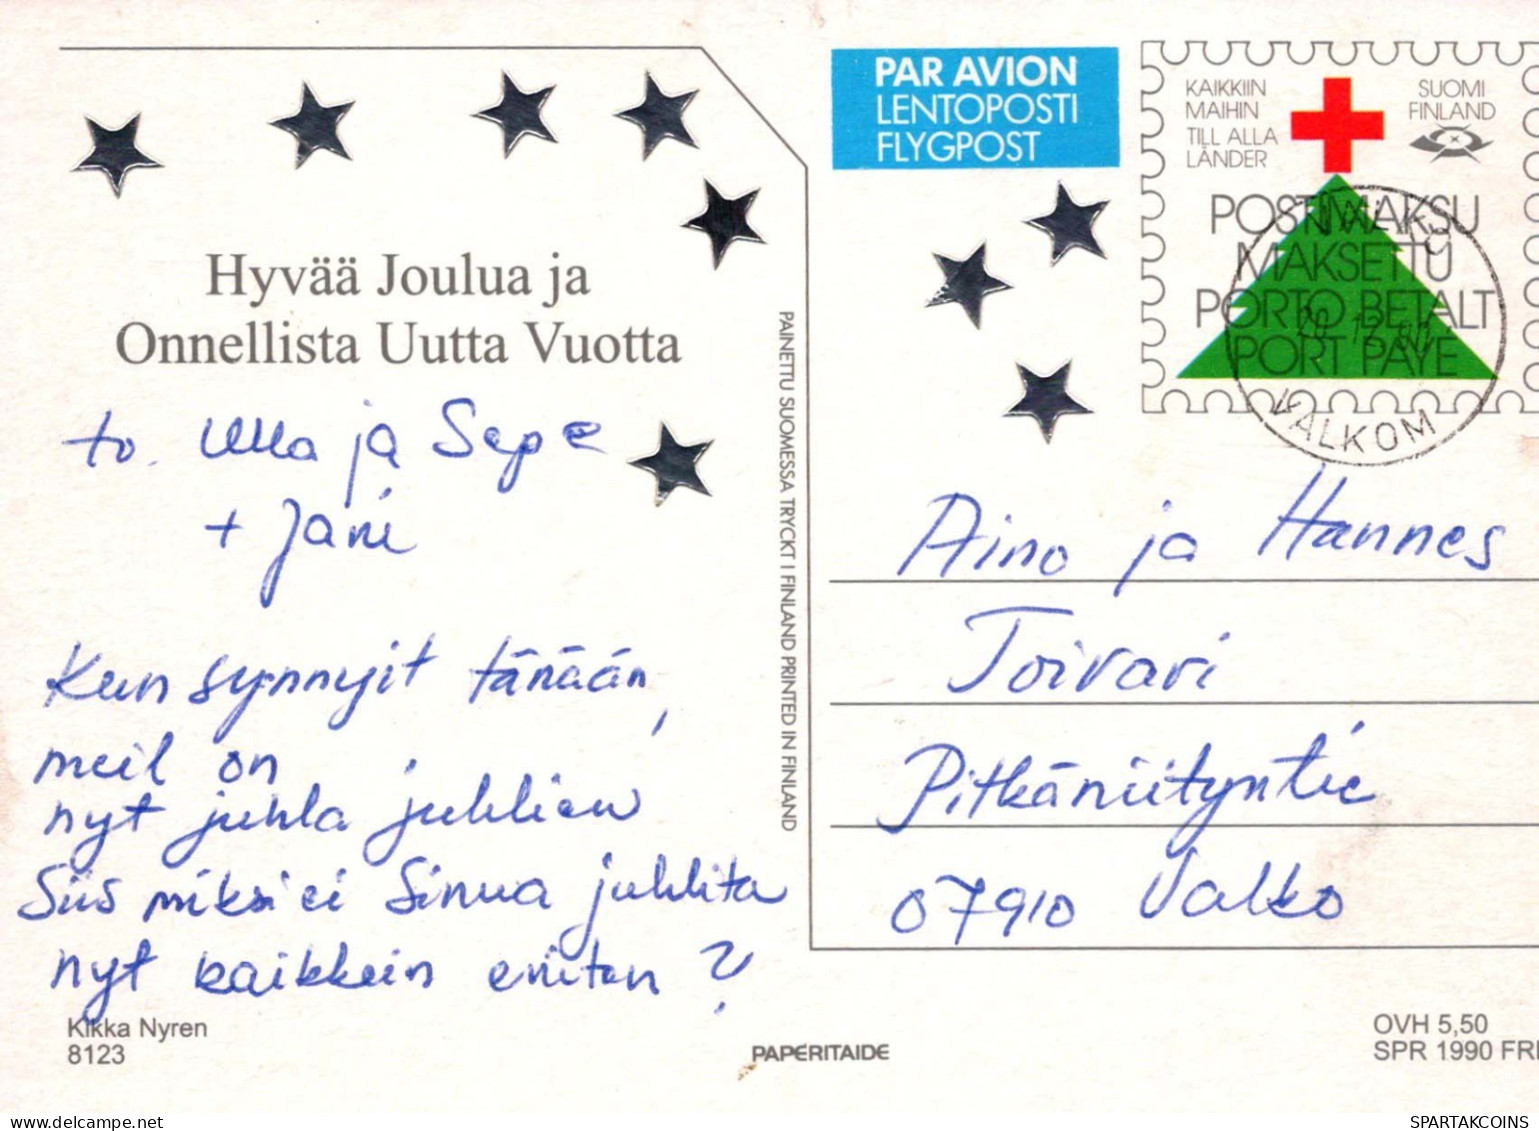 Hyvää Joulua ja
Onnellista Uutta Vuotta
to. Ulla ja Sepe
+ Jani
Kun synnyit tänään,
meil on
nyt juhla juhlien
Siis miksi ei Sinua juhlita
nyt kaikkein eniten ?
Kikka Nyren
8123
PAINETTU SUOMESSA TRYCKT I FINLAND PRINTED IN FINLAND
PAPERITAIDE
PAR AVION
LENTOPOSTI
FLYGPOST
KAIKKIIN
MAIHIN
TILL ALLA
LÄNDER
SUOMI
FINLAND
POSTIMAKSU
MAKSETTU
PORTO BETALT
PORT PAYÉ
VALKO
VALKOM
Aino ja Hannes
Toivari
Pitkäniityntie
07910 Valko
OVH 5,50
SPR 1990 FRK
SPARTAKCOINS